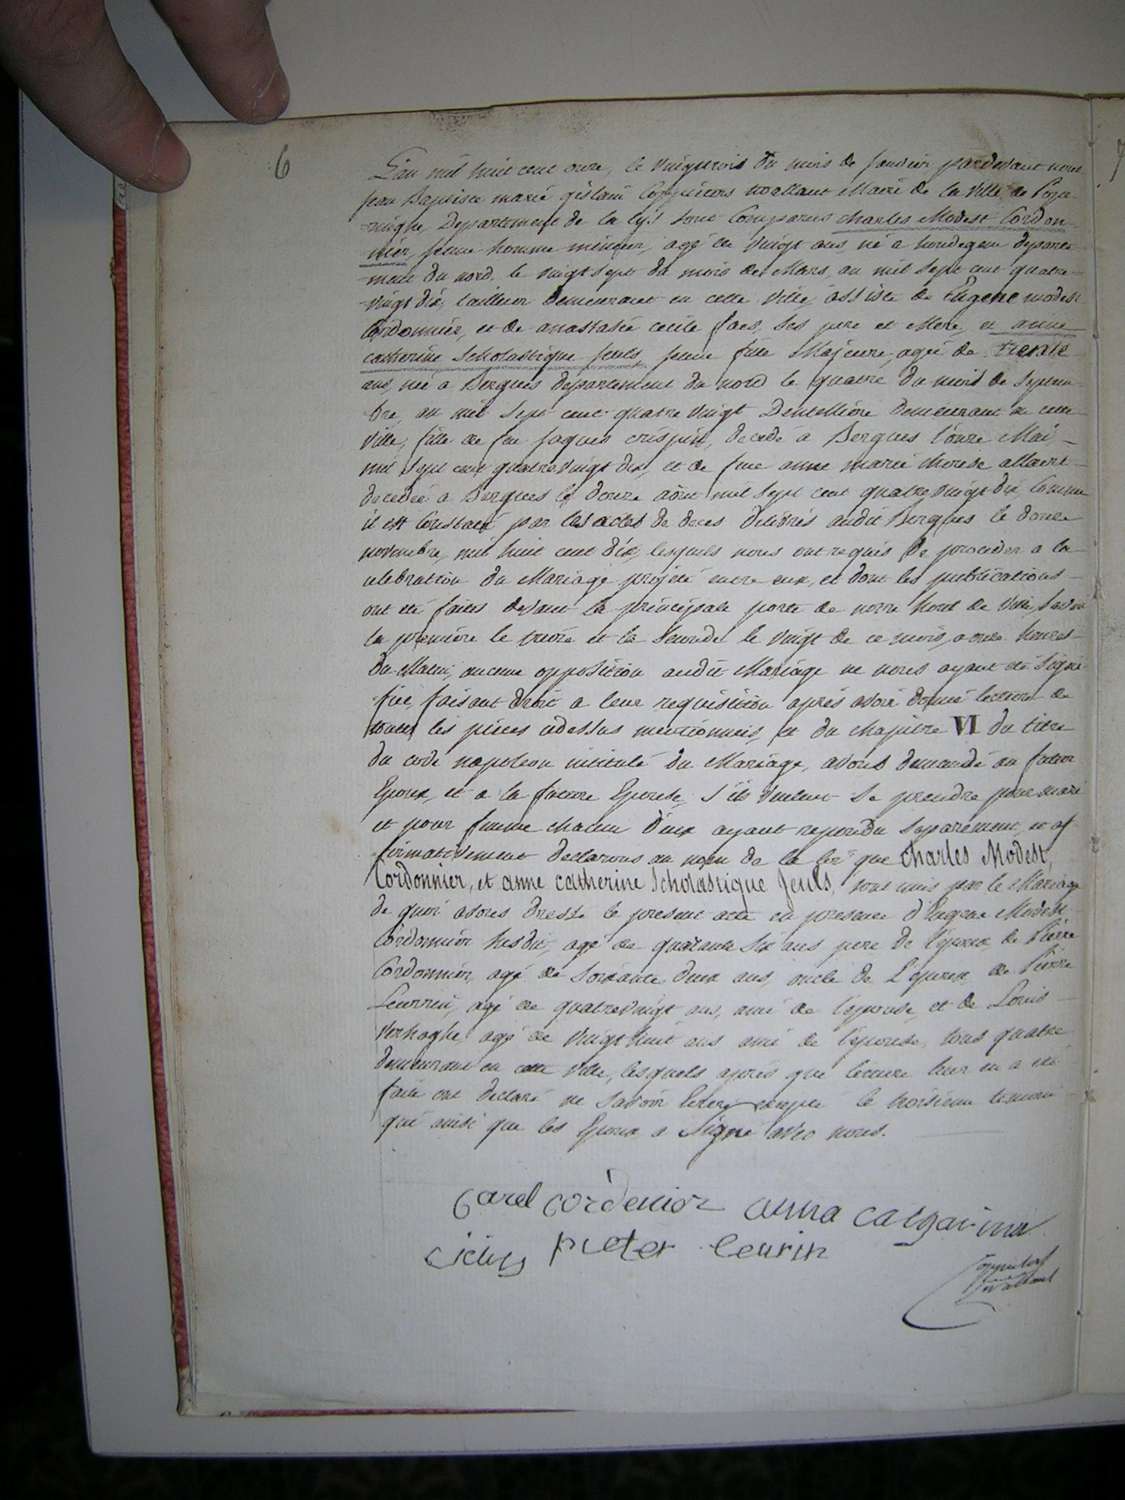 6
L'an mil huit cent onze, le vingt trois du mois de Janvier pardevant nous
jean Baptiste marie gislain Coppieters Wallant Maire de la Ville de Pope-
ringhe Departement de la Lys sont Comparus charles Modest Cordon-
nier, jeune homme mineur, agé de vingt ans, né a hondegem departe-
ment du nord, le vingt sept du mois de Mars, an mil sept cent quatre-
vingt dix, tailleur demeurant en cette ville, assisté de Eugene modest
Cordonnier, et de anastasie cecile faes, ses pere et Mere, et anne
catherine Scholastique Jeuls, jeune fille Majeure, agée de trente
ans, née à Bergues departement du nord le quatre du mois de Septem-
bre, an mil sept cent quatre vingt Dentellière demeurant en cette
ville, fille de feu jaques crispin, decedé à Bergues l'onze Mai
mil sept cent quatrevingt dix, et de feue anne marie therese allaert
decedée a Bergues le douze août mil sept cent quatrevingt dix, Comme
il est Constaté par les actes de deces delivrés audit Bergues le douze
novembre, mil huit cent dix, lesquels nous ont requis de proceder a la
celebration du Mariage projeté entre eux, et dont les publications
ont été faites devant la principale porte de notre hotel de Ville, Savoir
la première le treize et la Seconde le vingt de ce mois, a onze heures
du Matin, aucune opposition audit Mariage ne nous ayant été Signi
fiée, faisant droit a leur requisition après avoir donné lecture de
toutes les pièces cidessus mentionnées, et du chapitre VI du titre
du code napoleon intitulé du Mariage, avons demandé au futur
Epoux, et a la future Epouse, s'ils veulent se prendre pour mari
et pour femme chacun d'eux ayant repondu separement, et af
firmativement declarons au nom de la loi que charles Modest
Cordonnier, et anne catherine Scholastique Jeuls, sont unis par le Mariage
de quoi avons dressé le present acte en presence d'Eugene Modest
Cordonnier susdit, agé de quarante six ans pere de l'epoux de Pierre
Cordonnier, agé de soixante deux ans, oncle de L'epoux, de Pierre
Leurrein, agé de quatrevingt ans, ami de l'epouse, et de Louis
Verhaghe agé de vingt huit ans ami de l'epouse, tous quatre
demeurant en cette ville, lesquels après que lecture leur en a été
faite ont declaré ne savoir ecrire excepté le troisieme temoin
qui ainsi que les Epoux a Signé avec nous.
Carel cordenier anna catgarina
pieter leurin
Coppieters
Wallant